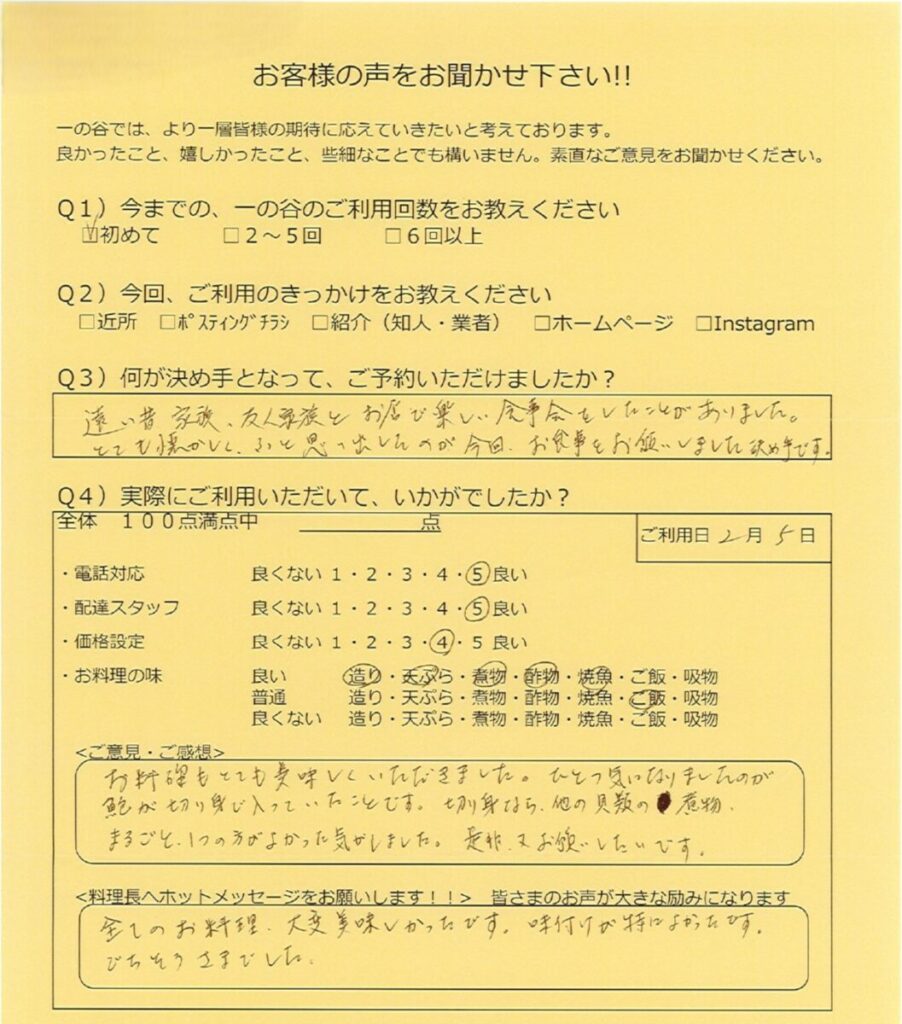 お客様の声をお聞かせ下さい!!
一の谷では、より一層皆様の期待に応えていきたいと考えております。
良かったこと、嬉しかったこと、些細なことでも構いません。素直なご意見をお聞かせください。
Q1）今までの、一の谷のご利用回数をお教えください
☑初めて　□２～５回　□６回以上
Q2）今回、ご利用のきっかけをお教えください
□近所　□ﾎﾟｽﾃｨﾝｸﾞﾁﾗｼ　□紹介（知人・業者）　□ホームページ　□Instagram
Q3）何が決め手となって、ご予約いただけましたか？
遠い昔 家族、友人家族と お店で楽しい食事会をしたことがありました。
とても懐かしく、ふっと思い出したのが今回、お食事をお願いしました決め手です。
Q4）実際にご利用いただいて、いかがでしたか？
全体　１００点満点中　　　　点
ご利用日 2 月 5 日
・電話対応　良くない 1・2・3・4・5 良い
・配達スタッフ　良くない 1・2・3・4・5 良い
・価格設定　良くない 1・2・3・4・5 良い
・お料理の味　良い　造り・天ぷら・煮物・酢物・焼魚・ご飯・吸物
普通　造り・天ぷら・煮物・酢物・焼魚・ご飯・吸物
良くない　造り・天ぷら・煮物・酢物・焼魚・ご飯・吸物
<ご意見・ご感想>
お料理もとても美味しくいただきました。ひとつ気になりましたのが
鮑が切り身で入っていたことです。切り身なら、他の貝類の 煮物、
まるごと、1つの方がよかった気がしました。是非、又お願いしたいです。
<料理長へホットメッセージをお願いします！！>　皆さまのお声が大きな励みになります
全てのお料理、大変美味しかったです。味付けが特によかったです。
ごちそうさまでした。